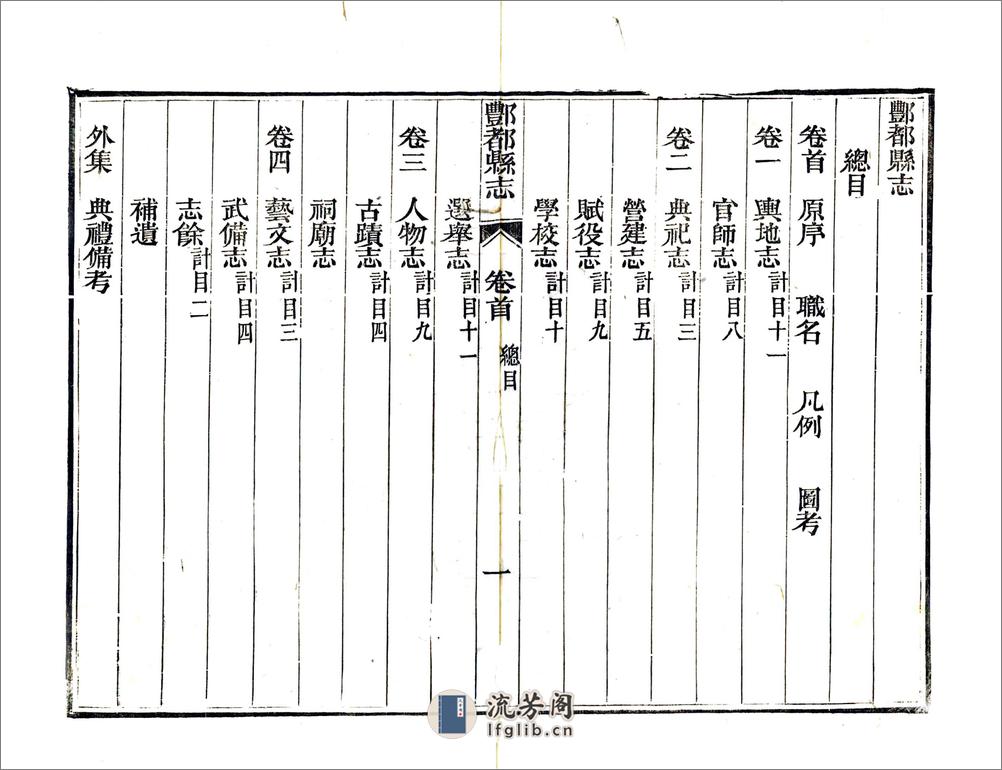 酆都縣志
總目
卷首 原序 職名 凡例 圖考
卷一 輿地志計目十一
官師志計目八
卷二 典祀志計目三
營建志計目五
賦役志計目九
學校志計目十
酆都縣志 卷首 總目 一
選舉志計目十一
卷三 人物志計目九
古蹟志計目四
祠廟志
卷四 藝文志計目三
武備志計目四
志餘計目二
補遺
外集 典禮備考
流芳阁
lfglib.cn